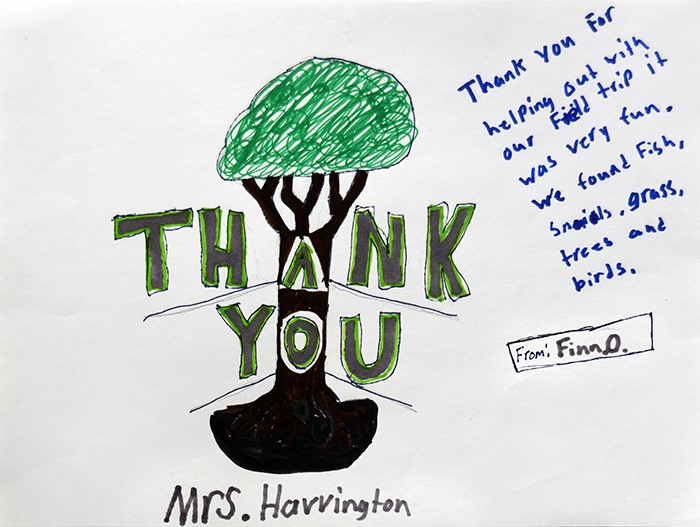 THANK
YOU
Mrs. Harrington
Thank you for
helping out with
our Field trip it
was very fun.
we found Fish,
snaials, grass,
trees and
birds.
From: Finn O.